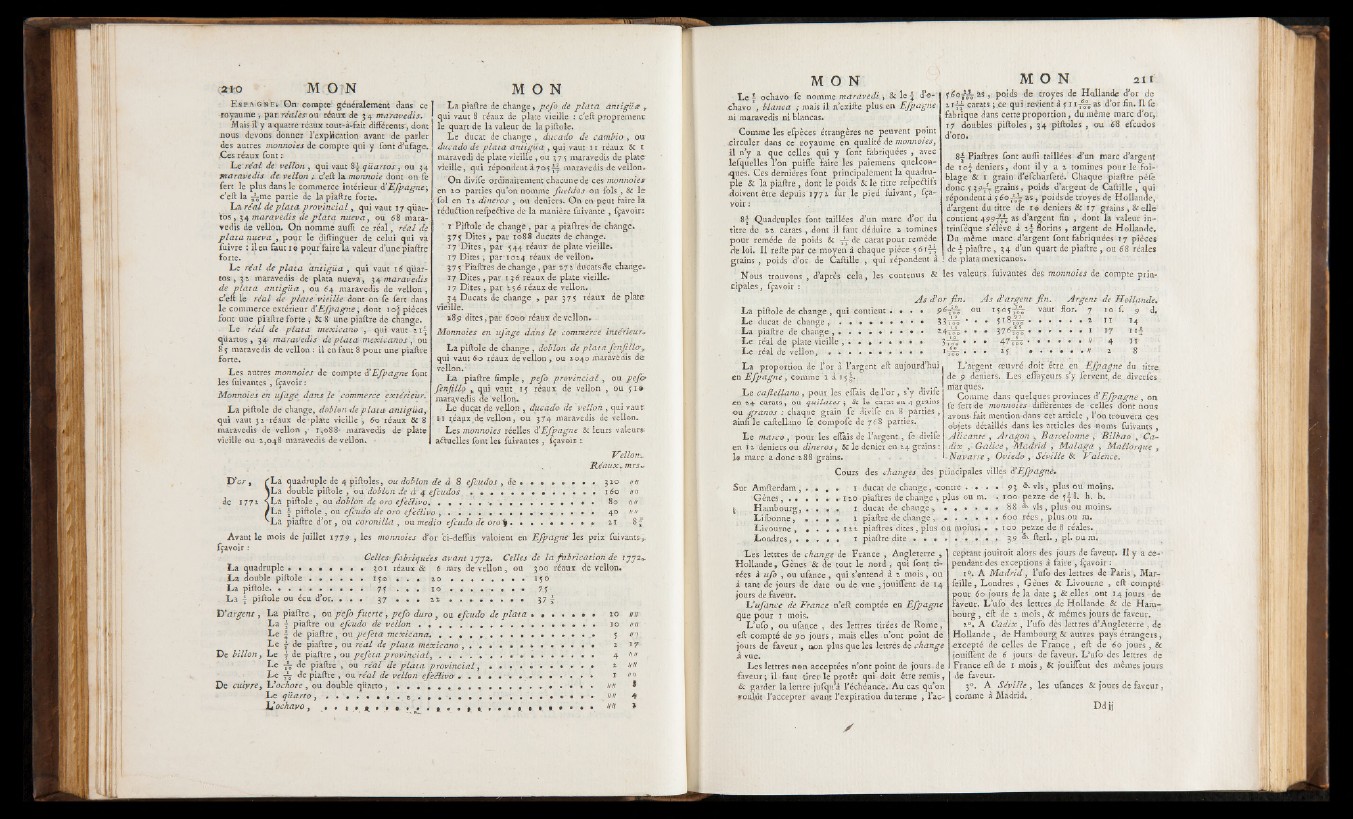 210 M O N
M O N
ESPAGNE. On compte généralement dans ce
royaume, par réales ou réaux de 34 maravedis.
Mais il y a quatre réaux tout-à-fait différents, dont
nous devons donner l'explication avant de parler
des autres monnoies de compte qui y font d'ufage.
Ces réaux font :
Le réal de vellon, qui vaut 8½ qüartos, ou 34
maravedis de vellon ; c'eft la monnoie dont on fe
fert le plus dans le commerce intérieur d'Efpagne,
c'eft la me partie de la piaftre forte.
La réal de plata provincial, qui vaut 17 qüar-
tos, 34 maravedis de plata nueva, ou 68 mara-
vedis de vellon. On nomme auffi ce réal, réal de
plata nueva, pour le diftinguer de celui qui va
fuivre : il en faut 10 pour faire la valeur d'une piaftre
forte.
Le réal de plata antigüa, qui vaut 16 qüar-
tos, 32 maravedis de plata nueva, 34 maravedis
de plata antigüa, ou 64 maravedis de vellon,
c'eft le réal de plate vieille dont on fe fert dans
le commerce extérieur d'Efpagne, dont 10⅝ pièces
font une piaftre forte, & 8 une piaftre de change.
Le réal de plata mexicano, qui vaut 21¼
qüartos, 34 maravedis de plata mexicanos, ou
85 maravedis de vellon : il en faut 8 pour une piaftre
forte.
Les autres monnoies de compte d'Efpagne font
les fuivantes, fçavoir :
Monnoies en ufage dans le commerce extérieur.
La piftole de change, doblon de plata antigüa,
qui vaut 32 réaux de plate vieille, 60 réaux & 8
maravedis de vellon, 1,088 maravedis de plate
vieille ou 2,048 maravedis de vellon.
La piaftre de change, pefo de plata antigüa,
qui vaut 8 réaux de plate vieille : c'eft proprement
le quart de la valeur de la piftole.
Le ducat de change, ducado de cambio, ou
ducado de plata antigüa, qui vaut 11 réaux & 1
maravedi de plate vieille, ou 375 maravedis de plate
vieille, qui répondent à 705 maravedis de vellon.
On divife ordinairement chacune de ces monnoies
en 20 parties qu'on nomme fueldos ou fols, & le
fol en 12 dineros, ou deniers. On en peut faire la
réduction refpective de la manière fuivante, fçavoir :
1 Piftole de change, par 4 piaftres de change.
375 Dites, par 1088 ducats de change.
17 Dites, par 544 réaux de plate vieille.
17 Dites, par 1024 réaux de vellon.
375 Piaftres de change, par 272 ducats de change.
17 Dites, par 136 réaux de plate vieille.
17 Dites, par 256 réaux de vellon.
34 Ducats de change, par 375 réaux de plate
vieille.
289 dites, par 6000 réaux de vellon.
Monnoies en ufage dans le commerce intérieur.
La piftole de change, doblon de plata fenfillo,
qui vaut 60 réaux de vellon, ou 2040 maravedis de
vellon.
La piaftre fimple, pefo provincial, ou pefo
fenfillo, qui vaut 15 réaux de vellon, ou 510
maravedis de vellon.
Le ducat de vellon, ducado de vellon, qui vaut
11 réaux de vellon, ou 374 maravedis de vellon.
Les monnoies réelles d'Efpagne & leurs valeurs
actuelles font les fuivantes, fçavoir :
Vellon.
Réaux. mrs.
D'or, La quadruple de 4 piftoles, ou doblon de à 8 efcudos, de . . . . 320 ″″
La double piftole, ou doblon de à 4 efcudos . . . . 160 ″″
de 1772 La piftole, ou doblon de oro efectivo. . . . . 80 ″″
La ½ piftole, ou efcudo de oro efectivo, . . . . 40 ″″
La piaftre d'or, ou coronilla, ou medio efcudo de oro. . . . . 21 8½
Avant le mois de juillet 1779, les monnoies d'or ci-deffus valoient en Efpagne les prix fuivants,
fçavoir :
Celles fabriquées avant 1772. Celles de la fabrication de 1772.
La quadruple . . . . 301 réaux & 6 mrs de vellon, ou 300 réaux de vellon.
La double piftole . . . . 150 . . . 20 . . . . 150
La piftole. . . . . 75 . . . 10 . . . . 75
La ½ piftole ou écu d'or. . . . 37 . . . 22 . . . . 37½
D'argent, La piaftre, ou pefo fuerte, pefo duro, ou efcudo de plata . . . . 20 ″″
La ½ piaftre ou efcudo de vellon . . . . 10 ″″
Le ¼ de piaftre, ou pefeta mexicana. . . . . 5 ″″
Le ⅛ de piaftre, ou real de plata mexicano, . . . . 2 17
De billon, Le ⅕ de piaftre, ou pefeta provincial, . . . . 4 ″″
Le de piaftre, ou réal de plata provincial, . . . . 2 ″″
Le de piaftre, ou réal de vellon efectivo . . . . 1 ″″
De cuivre, L'ochote, ou double qüarto, . . . . ″″ 8
Le qüarto, . . . . ″″ 4
L'ochavo, . . . . ″″ 2
M O N
M O N 211
Le ½ ochavo fe nomme maravedi, & le ¼ d'o-
chavo, blanca ; mais il n'exifte plus en Efpagne
ni maravedis ni blancas.
Comme les efpèces étrangères ne peuvent point
circuler dans ce royaume en qualité de monnoies,
il n'y a que celles qui y font fabriquées, avec
lefquelles l'on puiffe faire les paiemens quelcon-
ques. Ces dernières font principalement la quadru-
ple & la piaftre, dont le poids & le titre refpectifs
doivent être depuis 1772 fur le pied fuivant, fça-
voir :
8½ Quadruples font taillées d'un marc d'or du
titre de 22 carats, dont il faut déduire 2 tomines
pour remède de poids & de carat pour remède
de loi. Il refte par ce moyen à chaque pièce grains, poids d'or de Caftille, qui répondent à
as, poids de troyes de Hollande d'or de
carats ; ce qui revient à as d'or fin. Il fe
fabrique dans cette proportion, du même marc d'or,
17 doubles piftoles, 34 piftoles, ou 68 efcudos
d'oro.
8½ Piaftres font auffi taillées d'un marc d'argent
de 10¾ deniers, dont il y a 2 tomines pour le foi-
blage & 1 grain d'efcharfeté. Chaque piaftre péfe
donc grains, poids d'argent de Caftille, qui
répondent à as, poids de troyes de Hollande,
d'argent du titre de 10 deniers & 17 grains, & elle
contient as d'argent fin, dont la valeur in-
trinféque s'élève à 2½ florins, argent de Hollande.
Du même marc d'argent font fabriquées 17 pièces
de ½ piaftre, 34 d'un quart de piaftre, ou 68 réales
de plata mexicanos.
Nous trouvons, d'après cela, les contenus & les valeurs fuivantes des monnoies de compte prin-
cipales, fçavoir :
As d'or fin. As d'argent fin. Argent de Hollande.
La piftole de change, qui contient . . . . ou vaut flor. 7 10 f. 9 d.
Le ducat de change, . . . . 2 11 14
La piaftre de change, . . . . 1 17 11½
Le réal de plate vieille, . . . . ″ 4 11
Le réal de vellon, . . . . ″ 2 8
La proportion de l'or à l'argent eft aujourd'hui
en Efpagne, comme 1 à 15½.
Le caftellano, pour les effais de l'or, s'y divife
en 24 carats, ou quilates ; & le carat en 4 grains
ou granos : chaque grain fe divife en 8 parties,
ainfi le caftellano fe compofe de 768 parties.
Le marco, pour les effais de l'argent, fe divife
en 12 deniers ou dineros, & le denier en 24 grains :
le marc a donc 288 grains.
L'argent œuvré doit être en Efpagne du titre
de 9 deniers. Les effayeurs s'y fervent de diverfes
marques.
Comme dans quelques provinces d'Efpagne, on
fe fert de monnoies différentes de celles dont nous
avons fait mention dans cet article, l'on trouvera ces
objets détaillés dans les articles des noms fuivants,
Alicante, Aragon, Barcelonne, Bilbao, Ca-
dix, Galice, Madrid, Malaga, Mallorque,
Navarre, Oviedo, Séville & Valence.
Cours des changes des principales villes d'Efpagne.
Sur Amfterdam, . . . . 1 ducat de change, contre . . . . 93 vls, plus ou moins.
Gènes, . . . . 120 piaftres de change, plus ou m. . 100 pezze de 5¾ l. h. b.
Hambourg, . . . . 1 ducat de change, . . . . 88 vls, plus ou moins.
Lifbonne, . . . . 1 piaftre de change, . . . . 600 rées, plus ou m.
Livourne, . . . . 122 piaftres dites, plus ou moins. . . 100 pezze de 8 réales.
Londres, . . . . 1 piaftre dite . . . . 39 fterl., pl. ou m.
Les lettres de change de France, Angleterre,
Hollande, Gènes & de tout le nord, qui font ti-
rées à ufo, ou ufance, qui s'entend à 2 mois, ou
à tant de jours de date ou de vue, jouiffent de 14
jours de faveur.
L'ufance de France n'eft comptée en Efpagne
que pour 1 mois.
L'ufo, ou ufance, des lettres tirées de Rome,
eft compté de 90 jours, mais elles n'ont point de
jours de faveur, non plus que les lettres de change
à vue.
Les lettres non acceptées n'ont point de jours de
faveur ; il faut tirer le protêt qui doit être remis,
& garder la lettre jufqu'à l'échéance. Au cas qu'on
voulût l'accepter avant l'expiration du terme, l'ac-
ceptant jouiroit alors des jours de faveur. Il y a ce-
pendant des exceptions à faire, fçavoir :
1°. A Madrid, l'ufo des lettres de Paris, Mar-
feille, Londres, Gènes & Livourne, eft compté
pour 60 jours de la date ; & elles ont 14 jours de
faveur. L'ufo des lettres de Hollande & de Ham-
bourg, eft de 2 mois, & mêmes jours de faveur.
2°. A Cadix, l'ufo des lettres d'Angleterre, de
Hollande, de Hambourg & autres pays étrangers,
excepté de celles de France, eft de 60 jours, &
jouiffent de 6 jours de faveur. L'ufo des lettres de
France eft de 1 mois, & jouiffent des mêmes jours
de faveur.
3°. A Séville, les ufances & jours de faveur,
comme à Madrid.
D d ij